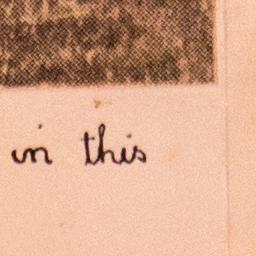 in this